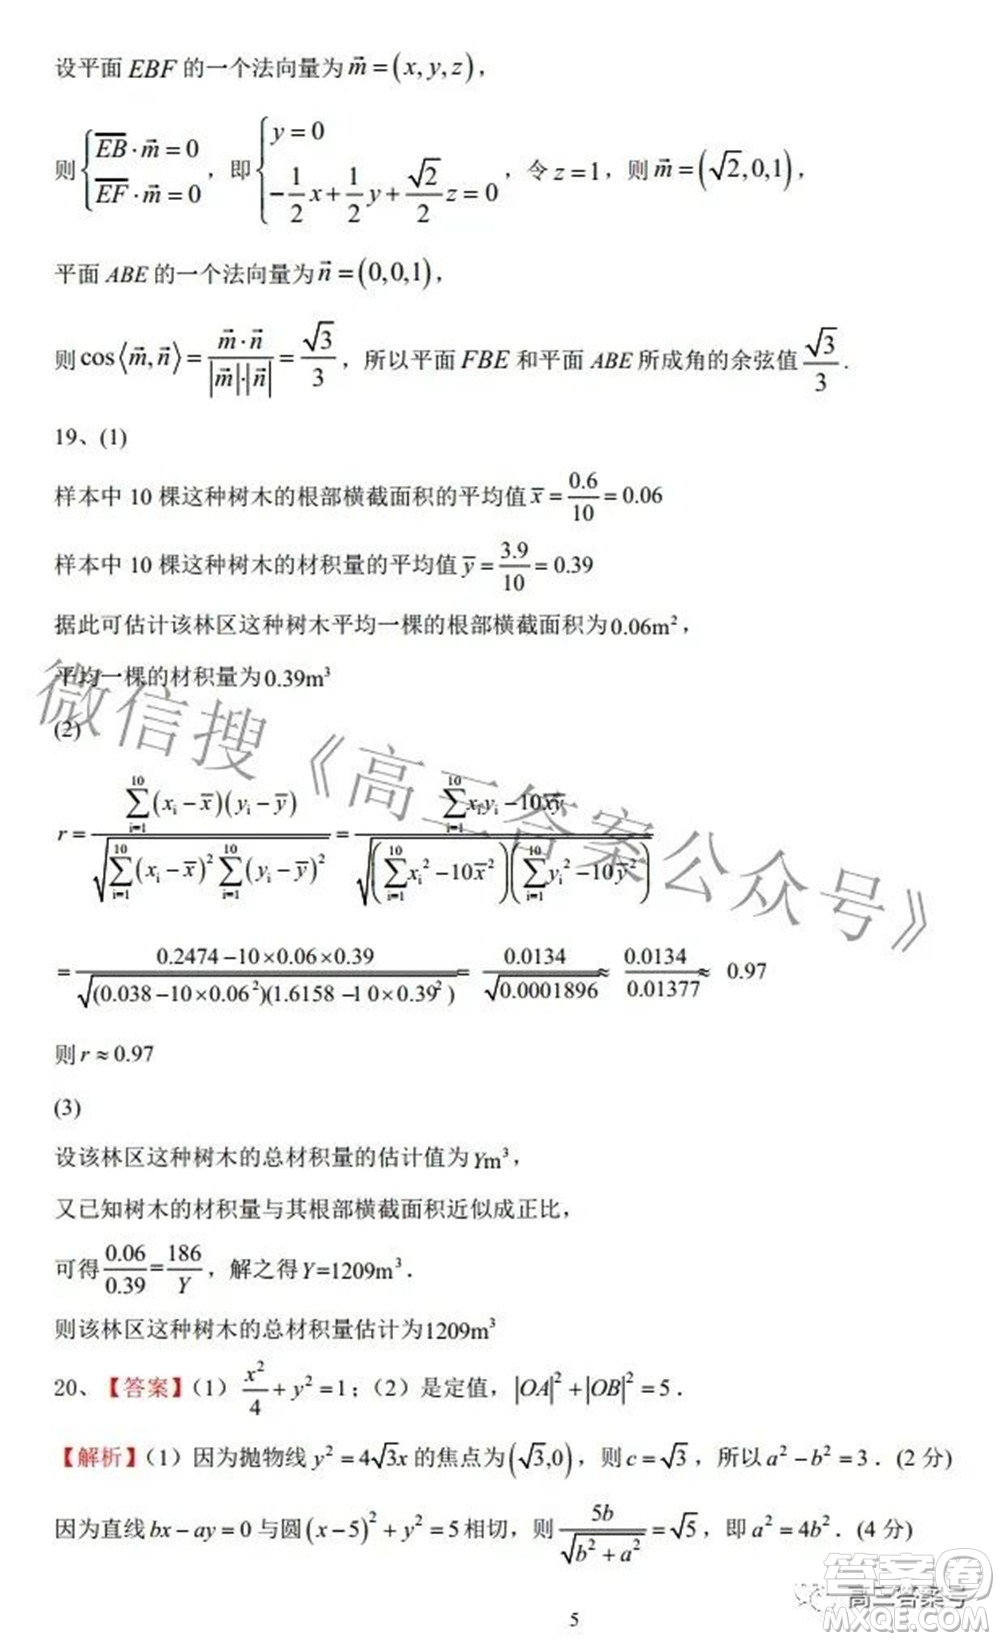 设平面 EBF 的一个法向量为 m⃗ = (x, y, z)，
则 { EB·m⃗ = 0, EF·m⃗ = 0 ，即 { y = 0, -1/2 x + 1/2 y + √2/2 z = 0 ，令 z = 1，则 m⃗ = (√2, 0, 1)，
平面 ABE 的一个法向量为 n⃗ = (0,0,1)，
则 cos⟨m⃗, n⃗⟩ = m⃗·n⃗ / |m⃗|·|n⃗| = √3/3，所以平面 FBE 和平面 ABE 所成角的余弦值 √3/3 .
19、(1)
样本中 10 棵这种树木的根部横截面积的平均值 x̄ = 0.6/10 = 0.06
样本中 10 棵这种树木的材积量的平均值 ȳ = 3.9/10 = 0.39
据此可估计该林区这种树木平均一棵的根部横截面积为 0.06m²，
平均一棵的材积量为 0.39m³
(2)
r = ∑_{i=1}^{10}(x_i − x̄)(y_i − ȳ) / √(∑_{i=1}^{10}(x_i − x̄)² ∑_{i=1}^{10}(y_i − ȳ)²) = (∑_{i=1}^{10} x_i y_i − 10x̄ȳ) / √((∑_{i=1}^{10} x_i² − 10x̄²)(∑_{i=1}^{10} y_i² − 10ȳ²))
= (0.2474 − 10×0.06×0.39) / √((0.038 − 10×0.06²)(1.6158 − 10×0.39²)) = 0.0134/√0.0001896 ≈ 0.0134/0.01377 ≈ 0.97
则 r ≈ 0.97
(3)
设该林区这种树木的总材积量的估计值为 Ym³，
又已知树木的材积量与其根部横截面积近似成正比，
可得 0.06/0.39 = 186/Y，解之得 Y=1209m³．
则该林区这种树木的总材积量估计为 1209m³
20、【答案】（1）x²/4 + y² = 1；（2）是定值，|OA|² + |OB|² = 5．
【解析】（1）因为抛物线 y² = 4√3x 的焦点为 (√3,0)，则 c = √3，所以 a² − b² = 3．(2 分)
因为直线 bx − ay = 0 与圆 (x − 5)² + y² = 5 相切，则 5b/√(b² + a²) = √5，即 a² = 4b²．(4 分)
5
微信搜《高三答案公众号》
高三答案号
答案圈
MXQE.COM